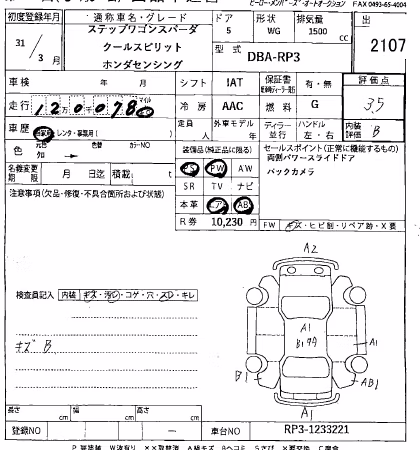 ヒーロー・メンバーズ・オートオークション FAX 0493-65-4004
初度登録年月 通称車名・グレード ドア 形状 排気量 出
31/3月 ステップワゴンスパーダ 5 WG 1500cc 2107
クールスピリット 型式 DBA-RP3
ホンダセンシング
車検 年 月 シフト IAT 保証書 有・無 評価点
走行 120,078 マイル km 冷房 AAC 燃料 G 3.5
車歴 自家用・レンタ・事業用( ) 定員 人 外車モデル 年 ディーラー 並行 ハンドル 左・右 内装評価 B
色 元色 知 → 色替 カラーNO
装備品(純正品に限る) セールスポイント(正常に機能するもの)
名義変更期限 月 日迄 積載( )t
PS PW AW 両側パワースライドドア
SR TV ナビ バックカメラ
注意事項(欠品・修復・不具合箇所および状態)
本革 エアB ABS
R券 10,230円
FW キズ・ヒビ割・リペア跡・X要
検査員記入 内装 キズ・汚れ・コゲ・穴・スレ・キレ
キズ B
A2
A1
B1
A1
B1
AB1
A1
長さ cm 幅 cm 高さ cm
登録NO ー 車台NO RP3-1233221